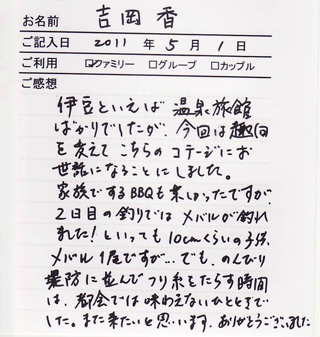 お名前 吉岡 香
ご記入日 2011 年 5 月 1 日
ご利用 ☑ファミリー □グループ □カップル
ご感想
伊豆といえば 温泉旅館
ばかりでしたが、今回は趣向
を変えて こちらの コテージにお
世話になることに しました。
家族でするBBQも楽しかったですが、
2日目の釣りでは メバルが釣れ
ました！といっても 10cmくらいの子供
メバル 1尾ですが… でも、のんびり
堤防に並んで つり糸をたらす時間
は、都会では味わえないひとときで
した。また来たいと思います。ありがとうございました